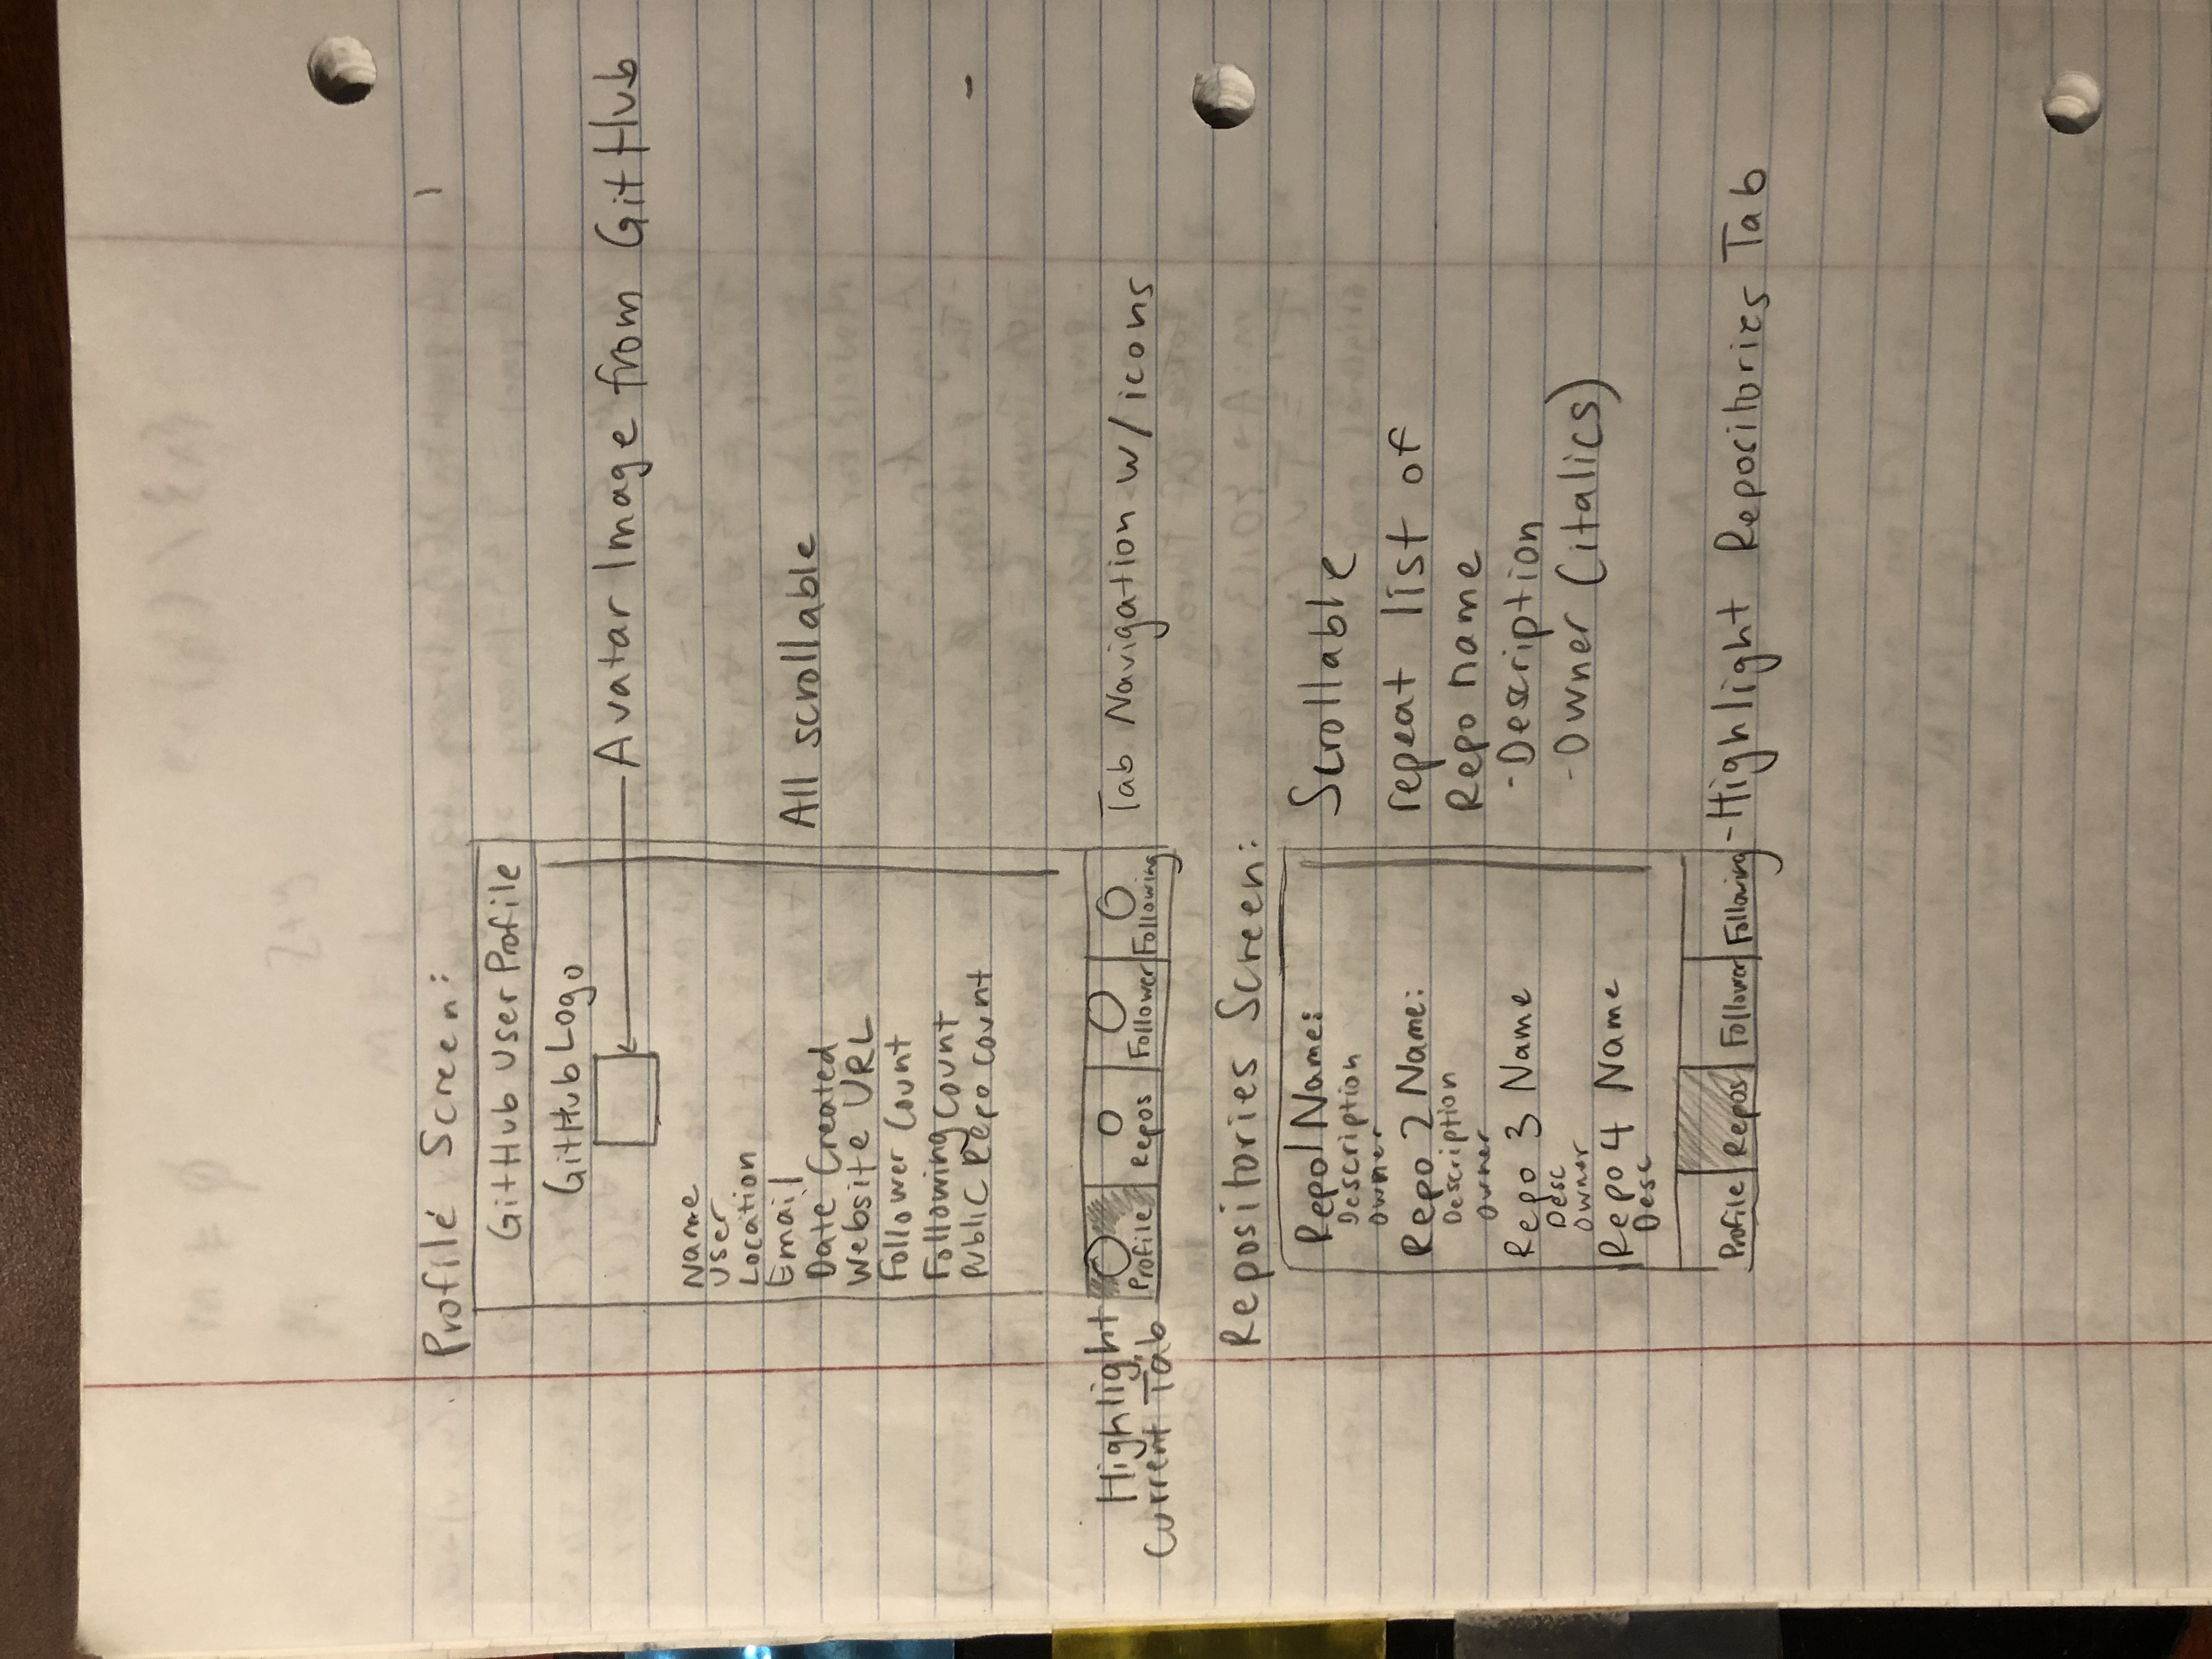 Profile Screen:
GitHub User Profile
GitHub Logo
Avatar Image from GitHub
Name
User
Location
Email
All scrollable
Date Created
Website URL
Follower Count
Following count
Public Repo count
Highlight
Current Tab
Profile Repos Follower Following
Tab Navigation w/ icons
Repositories Screen:
Repo 1 Name:
Description
Owner
Repo 2 Name:
Description
Owner
Repo 3 Name
Desc
Owner
Repo 4 Name
Desc
Scrollable
repeat list of
Repo name
-Description
-Owner (italics)
Profile Repos Follower Following
-Highlight Repositories Tab